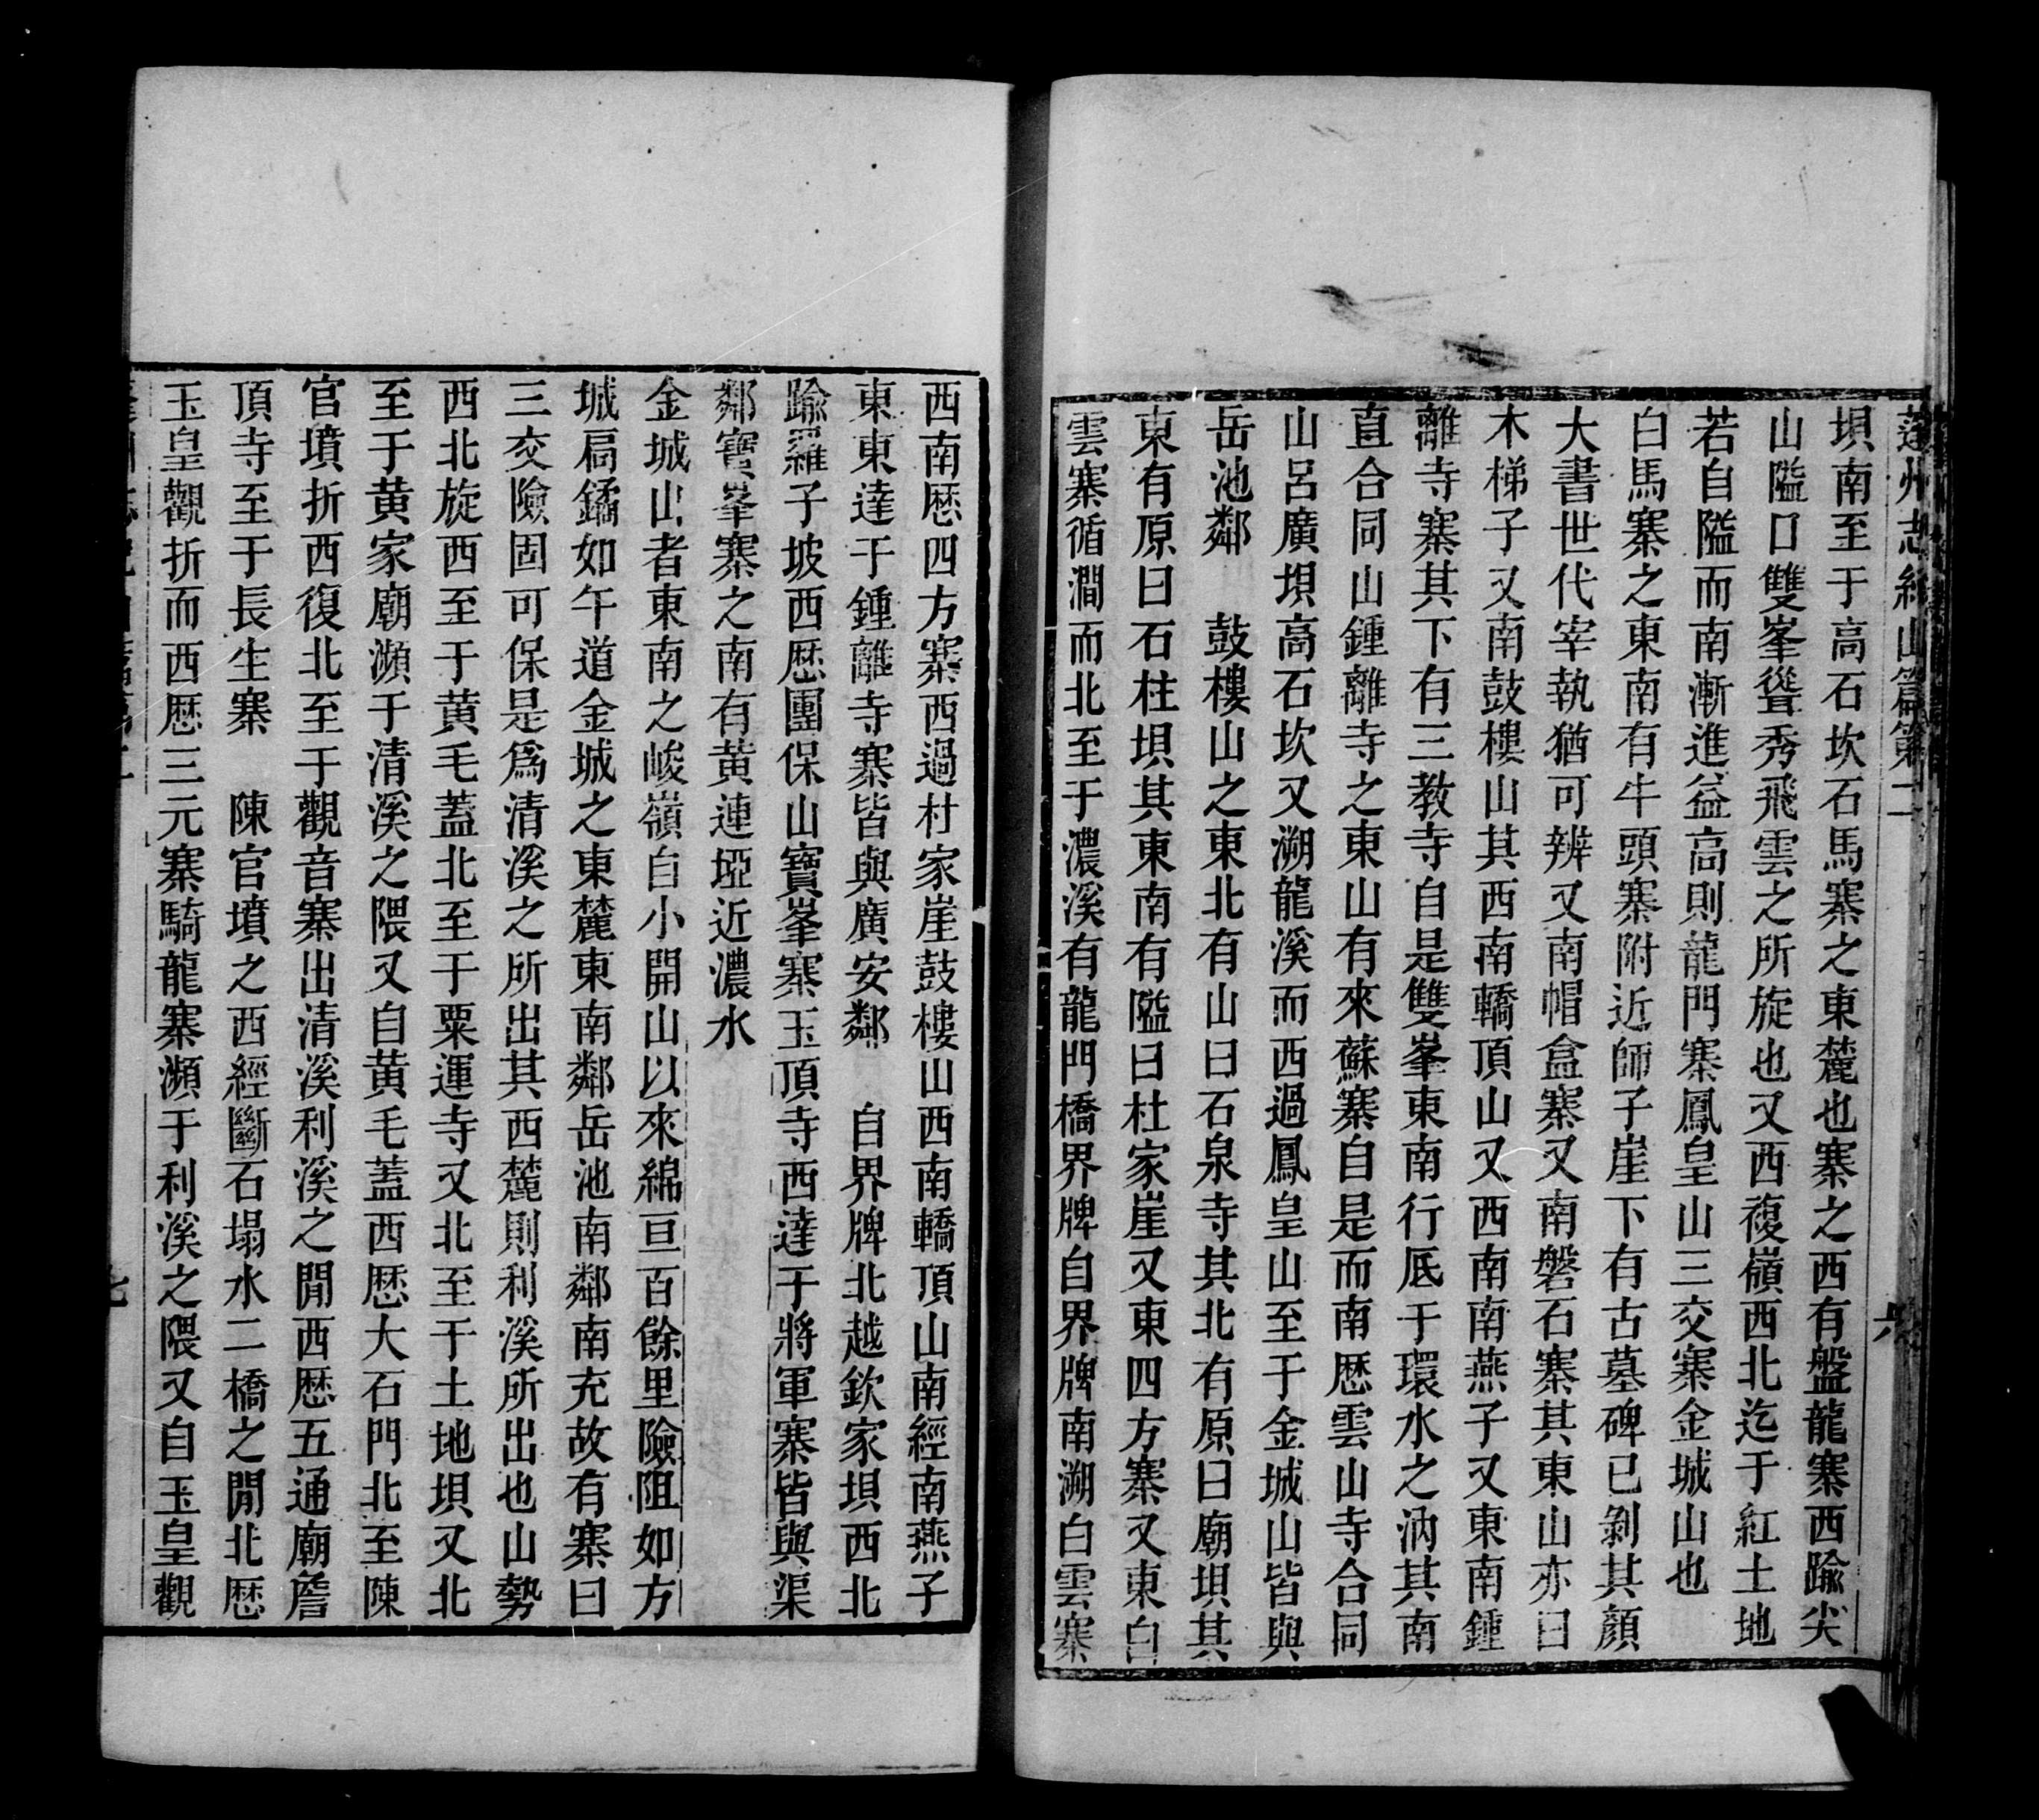 蓬州志紀山篇第二 六
垻南至于高石坎石馬寨之東麓也寨之西有盤龍寨西踰尖
山隘口雙峯聳秀飛雲之所旋也又西複嶺西北迄于紅土地
若自隘而南漸進益高則龍門寨鳳皇山三交寨金城山也
白馬寨之東南有牛頭寨附近師子崖下有古墓碑已剝其顏
大書世代宰執猶可辨又南帽盒寨又南磐石寨其東山亦曰
木梯子又南鼓樓山其西南轎頂山又西南南燕子又東南鍾
離寺寨其下有三教寺自是雙峯東南行底于環水之汭其南
直合同山鍾離寺之東山有來蘇寨自是而南歷雲山寺合同
山呂廣垻高石坎又溯龍溪而西過鳳皇山至于金城山皆與
岳池鄰　鼓樓山之東北有山曰石泉寺其北有原曰廟垻其
東有原曰石柱垻其東南有隘曰杜家崖又東四方寨又東白
雲寨循澗而北至于濃溪有龍門橋界牌自界牌南溯白雲寨
西南歷四方寨西過杜家崖鼓樓山西南轎頂山南經南燕子
東東達于鍾離寺寨皆與廣安鄰　自界牌北越欽家垻西北
踰羅子坡西歷團保山寶峯寨玉頂寺西達于將軍寨皆與渠
鄰寶峯寨之南有黃連埡近濃水
金城山者東南之峻嶺自小開山以來綿亘百餘里險阻如方
城扃鐍如午道金城之東麓東南鄰岳池南鄰南充故有寨曰
三交險固可保是爲清溪之所出其西麓則利溪所出也山勢
西北旋西至于黃毛蓋北至于粟運寺又北至于土地垻又北
至于黃家廟瀕于清溪之隈又自黃毛蓋西歷大石門北至陳
官墳折西復北至于觀音寨出清溪利溪之閒西歷五通廟詹
頂寺至于長生寨　陳官墳之西經斷石塌水二橋之閒北歷
玉皇觀折而西歷三元寨騎龍寨瀕于利溪之隈又自玉皇觀
七